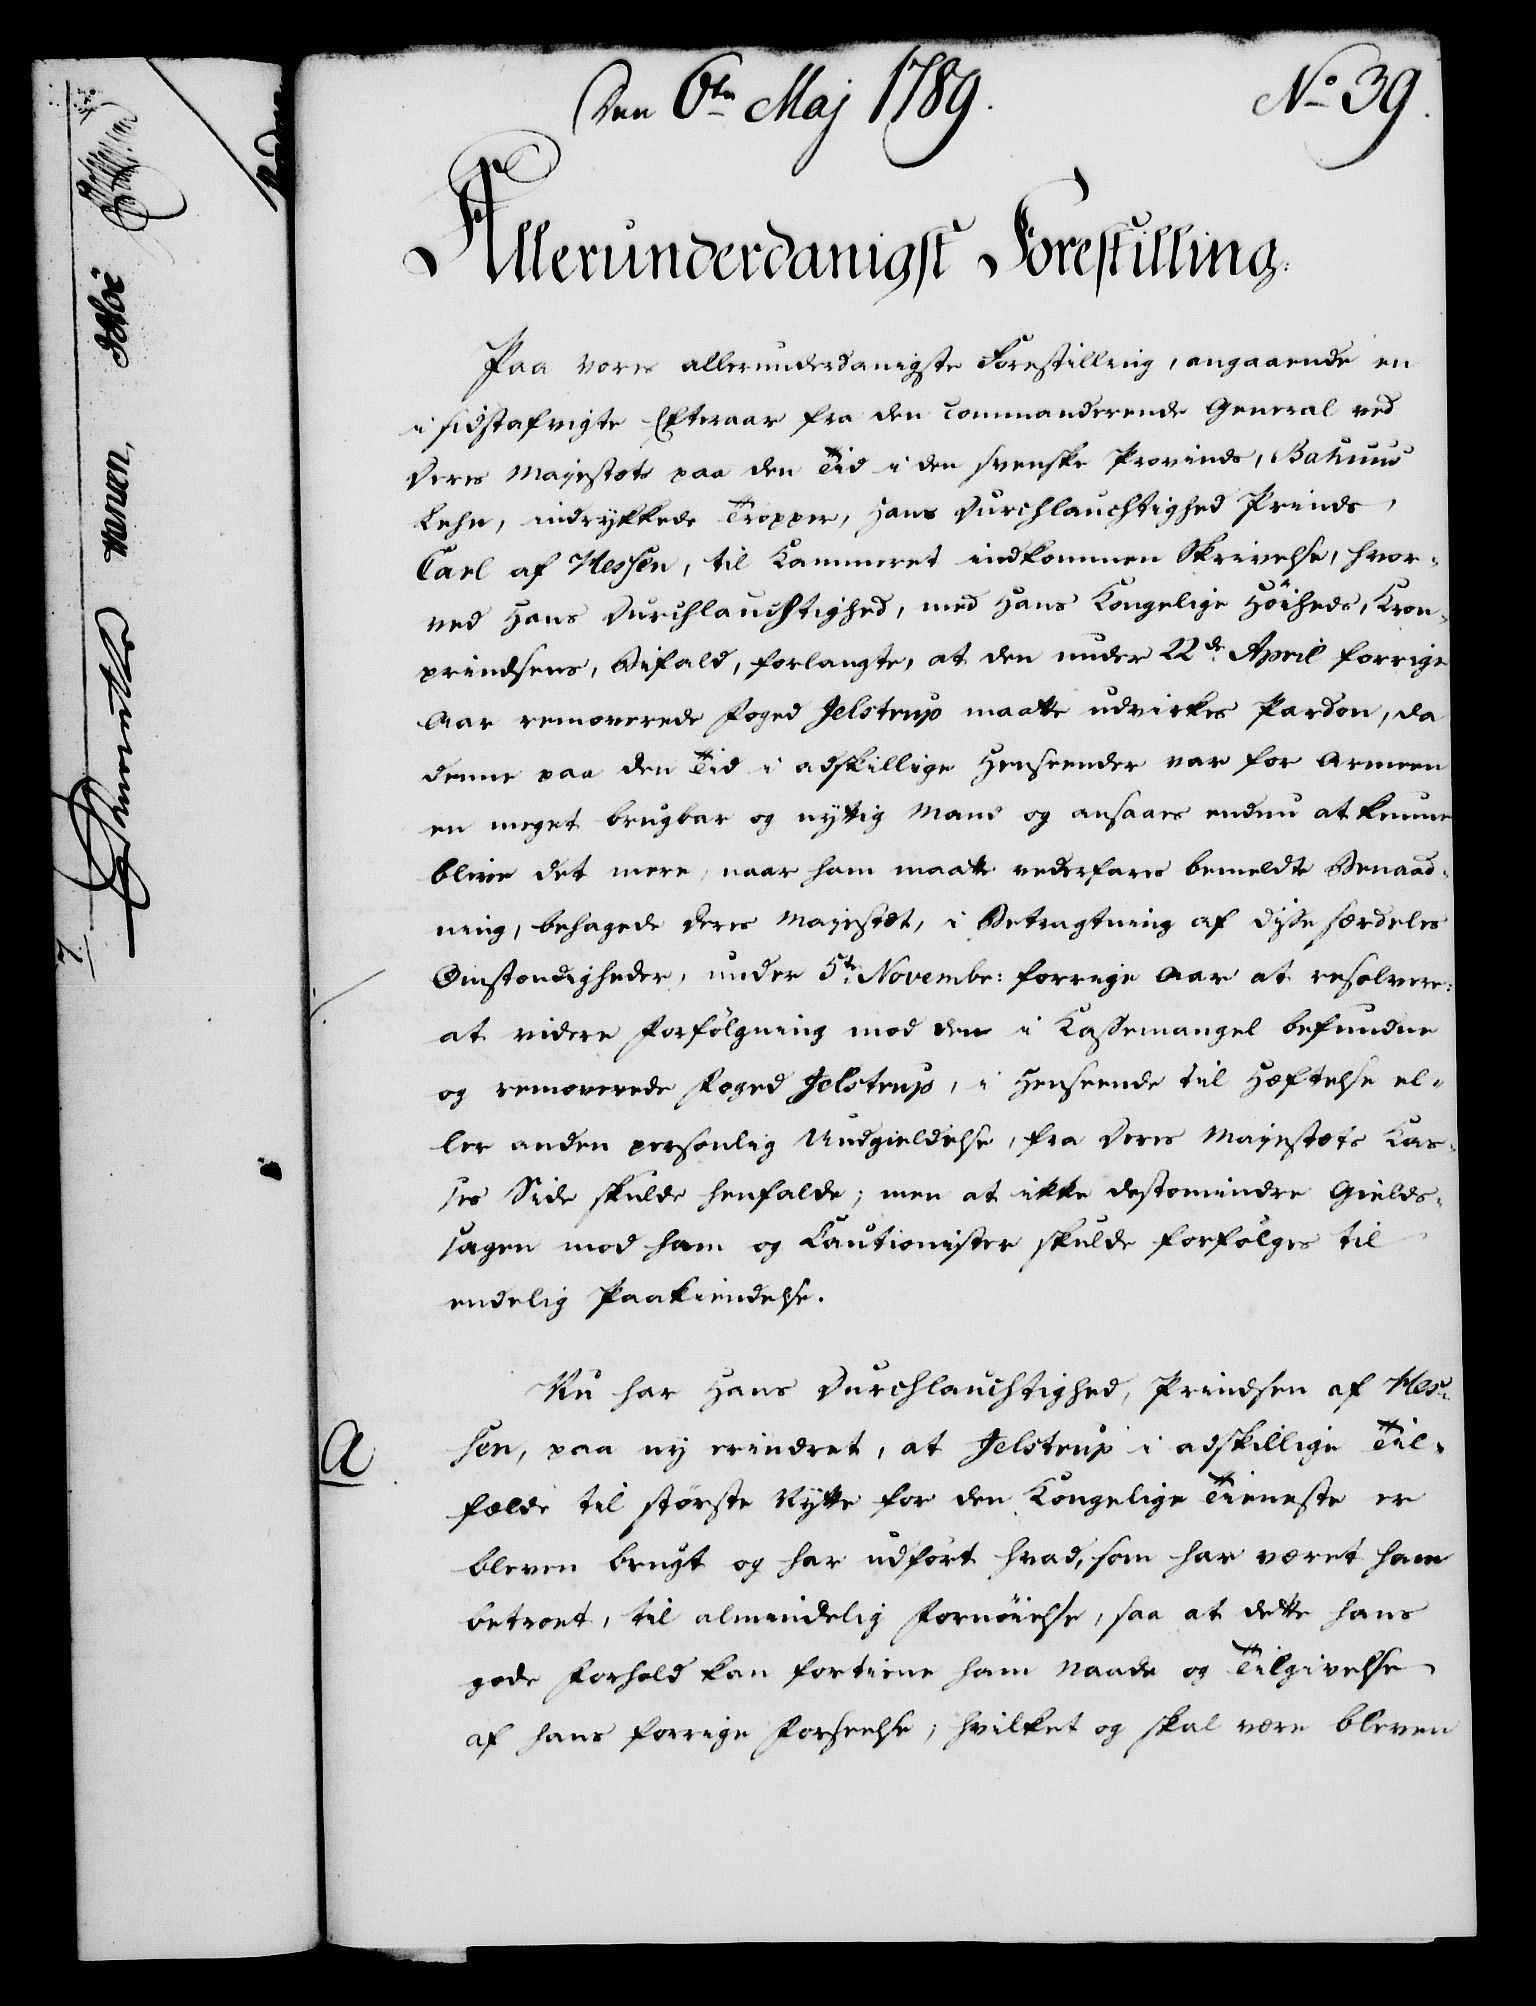 Den 6te Maj 1789. No 39.
Allerunderdanigst Forestilling.
Paa vores allerunderdanigste Forestilling, angaaende en
i sidstafvigte Efteraar fra den commanderende General ved
Deres Majestæts paa den Tid i den svenske Provinds, Bahuus
Lehn, indrykkede Tropper, Hans Durchlauchtighed Prinds
Carl af Hessen, til Kammeret indkommen Skrivelse, hvor-
ved Hans Durchlauchtighed, med Hans Kongelige Höiheds, Kron-
prindsens, Bifald, forlangte, at den under 22de April forrige
Aar removerede Foged Jelstrup maatte udvirkes Pardon, da
denne paa den Tid i adskillige Henseender var for Armeen
en meget brugbar og nyttig Mand og ansaaes endnu at kunne
blive det mere, naar ham maatte vederfares bemeldte Benaad-
ning, behagede Deres Majestæt, i Betragtning af disse særdeles
Omstændigheder, under 5te Novembr: forrige Aar at resolvere:
at videre Forfölgning mod den i Kassemangel befundne
og removerede Foged Jelstrup, i Henseende til Hæftelse el-
ler anden personlig Undgieldelse, fra Deres Majestæts Kas-
ses Side skulde henfalde; men at ikke destomindre Gields-
sagen mod ham og Cautionister skulde forfölges til
endelig Paakiendelse.
Nu har Hans Durchlauchtighed, Prindsen af Hes-
A
sen, paa ny erindret, at Jelstrup i adskillige Til-
fælde til störste Nytte for den Kongelige Tieneste er
bleven brugt og har udfört hvad, som har været ham
betroet, til almindelig Fornöielse, saa at dette hans
gode Forhold kan fortiene ham Naade og Tilgivelse
af hans forrige Forseelse; hvilket og skal være bleven